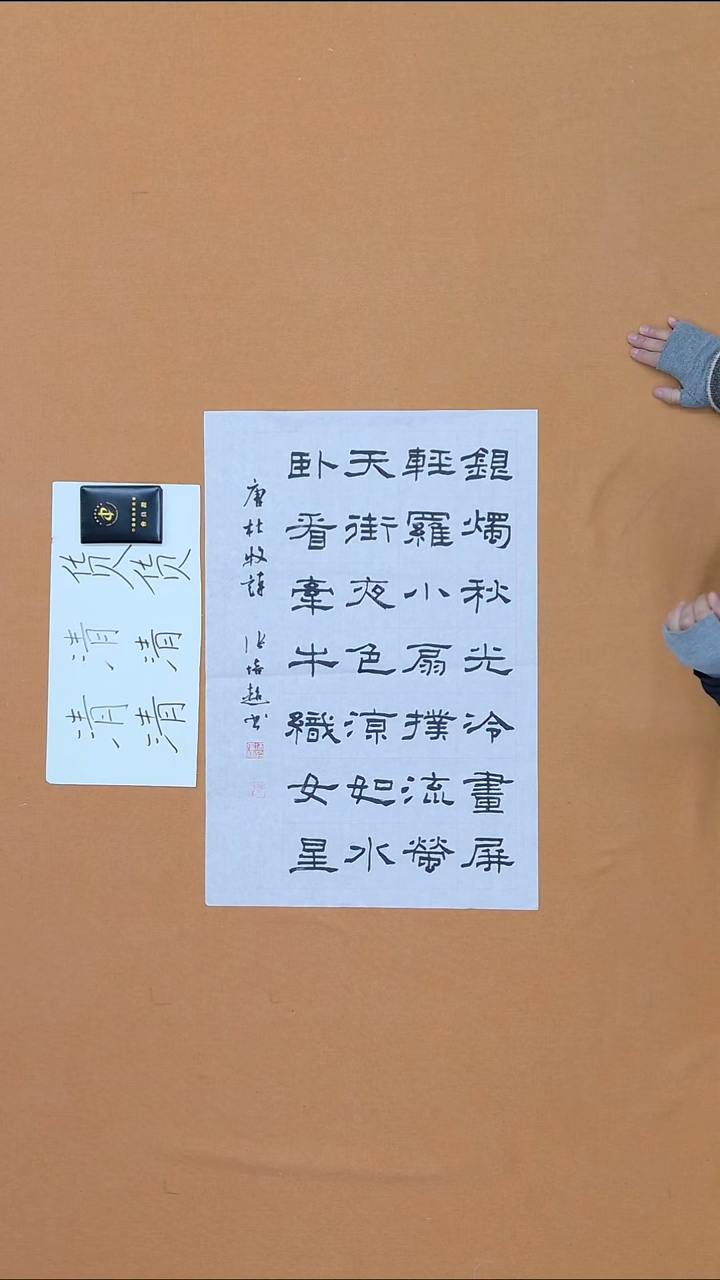 銀燭秋光冷畫屏
輕羅小扇撲流螢
天街夜色涼如水
卧看牽牛織女星
唐杜牧詩 张培超书
货清清
货清清